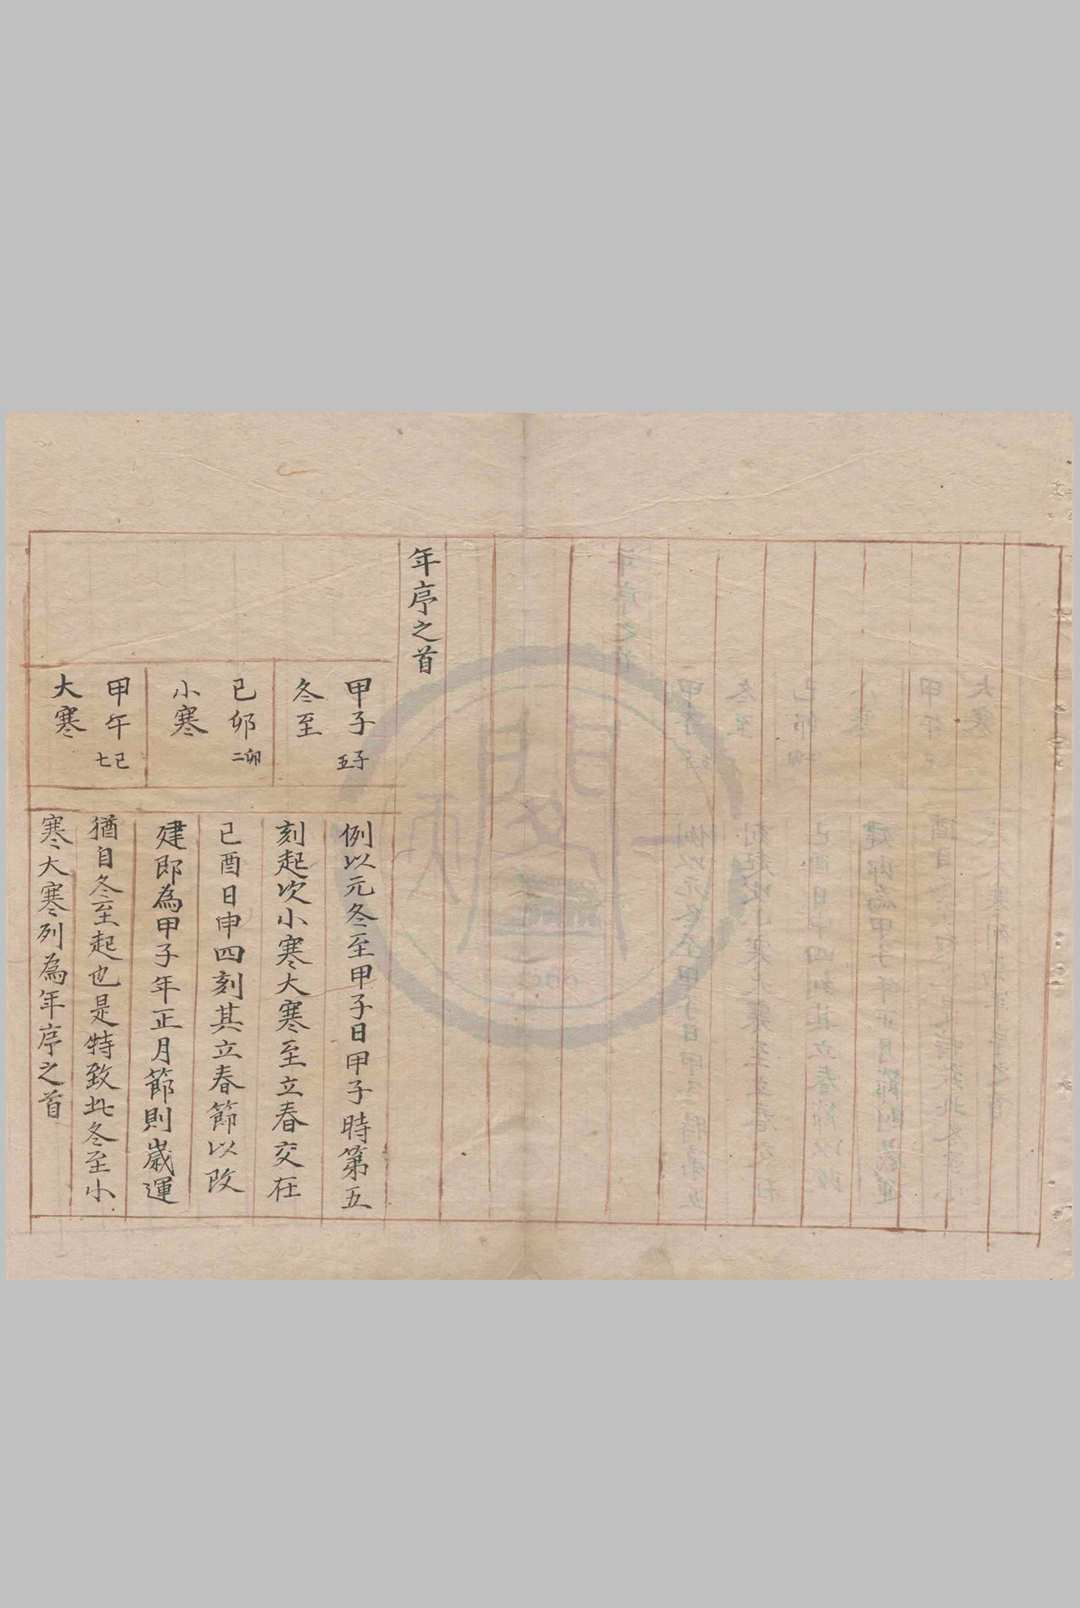 年序之首
甲子子五
冬至
己卯卯二
小寒
甲午巳七
大寒
例以元冬至甲子日甲子時第五
刻起次小寒大寒至立春交在
己酉日申四刻其立春節以改
建即為甲子年正月節則歲運
猶自冬至起也是特致此冬至小
寒大寒列為年序之首